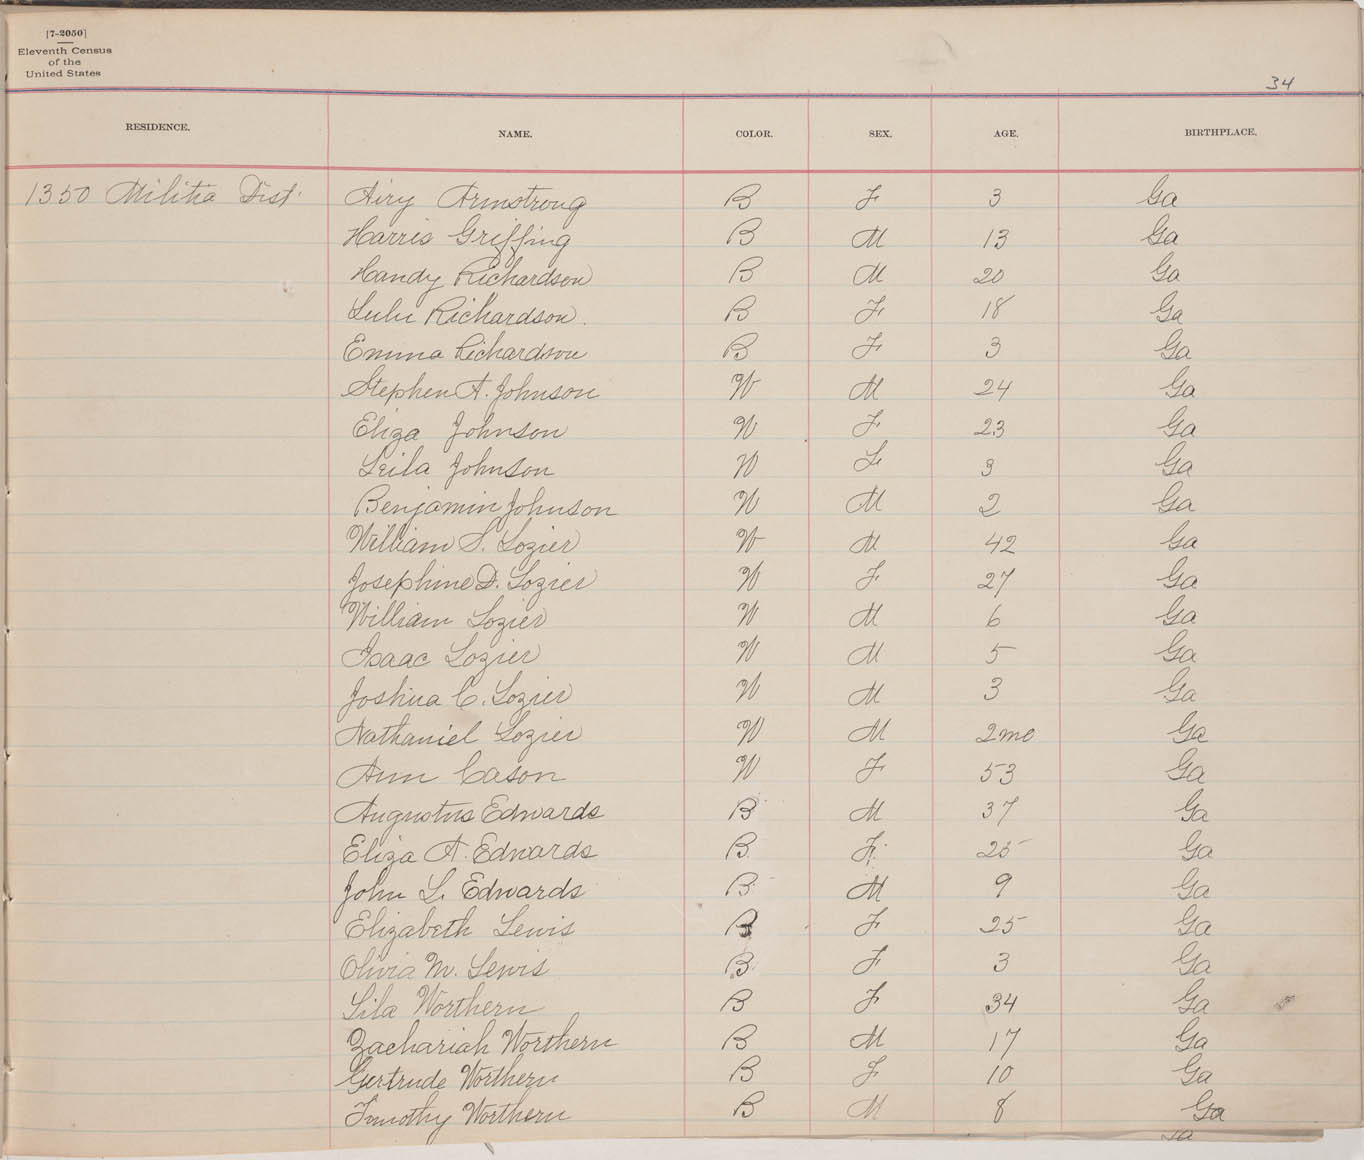 [7-2050]
Eleventh Census
of the
United States
34
RESIDENCE. NAME. COLOR. SEX. AGE. BIRTHPLACE.
1350 Militia Dist. Airy Armstrong B F 3 Ga
Harris Griffing B M 13 Ga
Handy Richardson B M 20 Ga
Lulu Richardson. B F 18 Ga
Emma Richardson B F 3 Ga
Stephen A. Johnson W M 24 Ga
Eliza Johnson W F 23 Ga
Leila Johnson W F 3 Ga
Benjamin Johnson W M 2 Ga
William S. Lozier W M 42 Ga
Josephine D. Lozier W F 27 Ga
William Lozier W M 6 Ga
Isaac Lozier W M 5 Ga
Joshua C. Lozier W M 3 Ga
Nathaniel Lozier W M 2mo Ga
Ann Cason W F 53 Ga
Augustus Edwards B M 37 Ga
Eliza A. Edwards B F 25 Ga
John L. Edwards B M 9 Ga
Elizabeth Lewis B F 25 Ga
Olivia M. Lewis B F 3 Ga
Lila Worthern B F 34 Ga
Zachariah Worthern B M 17 Ga
Gertrude Worthern B F 10 Ga
Timothy Worthern B M 8 Ga